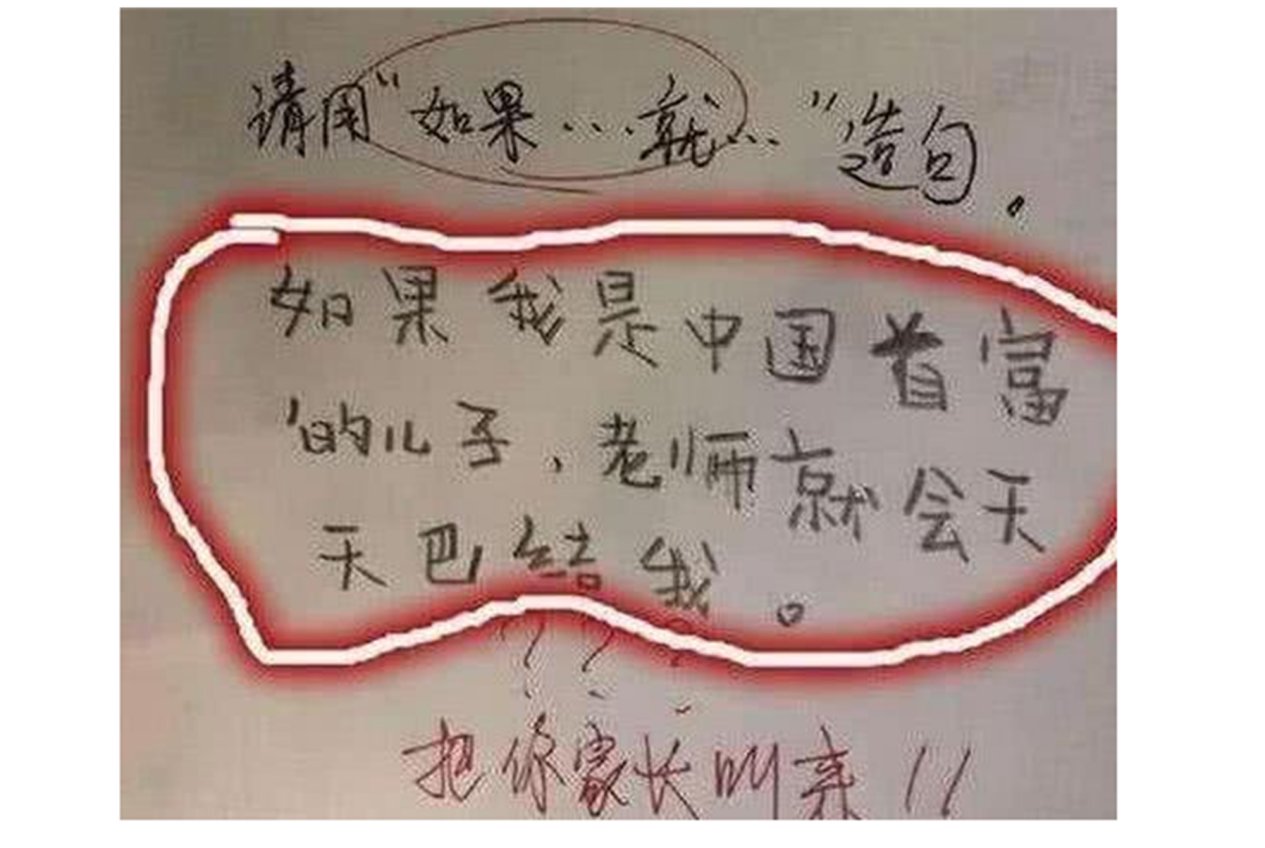 请用“如果...就...”造句.
如果我是中国首富
的儿子,老师就会天
天巴结我。
???
把你家长叫来!!